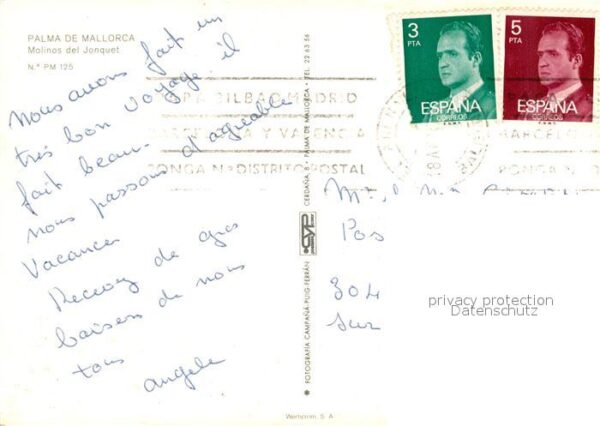 PALMA DE MALLORCA
Molinos del Jonquet
N.º PM 125
Nous avons fait un
très bon voyage il
fait beau.
nous passons d'agreable
Vacances
Recevez de gros
baisers de nous
tous
angele
BILBAO MADRID
Y VALENCIA
PONGA Nº DISTRITO POSTAL
3
PTA
ESPAÑA
CORREOS
F.N.M.T.
5
PTA
ESPAÑA
CORREOS
F.N.M.T.
BARCEL
PONGA N
CERDAÑA, 8 - PALMA DE MALLORCA - TEL. 22 63 56
CYP
FOTOGRAFIA CAMPAÑA-PUIG FERRÁN
Pos
304
Sur
privacy protection
Datenschutz